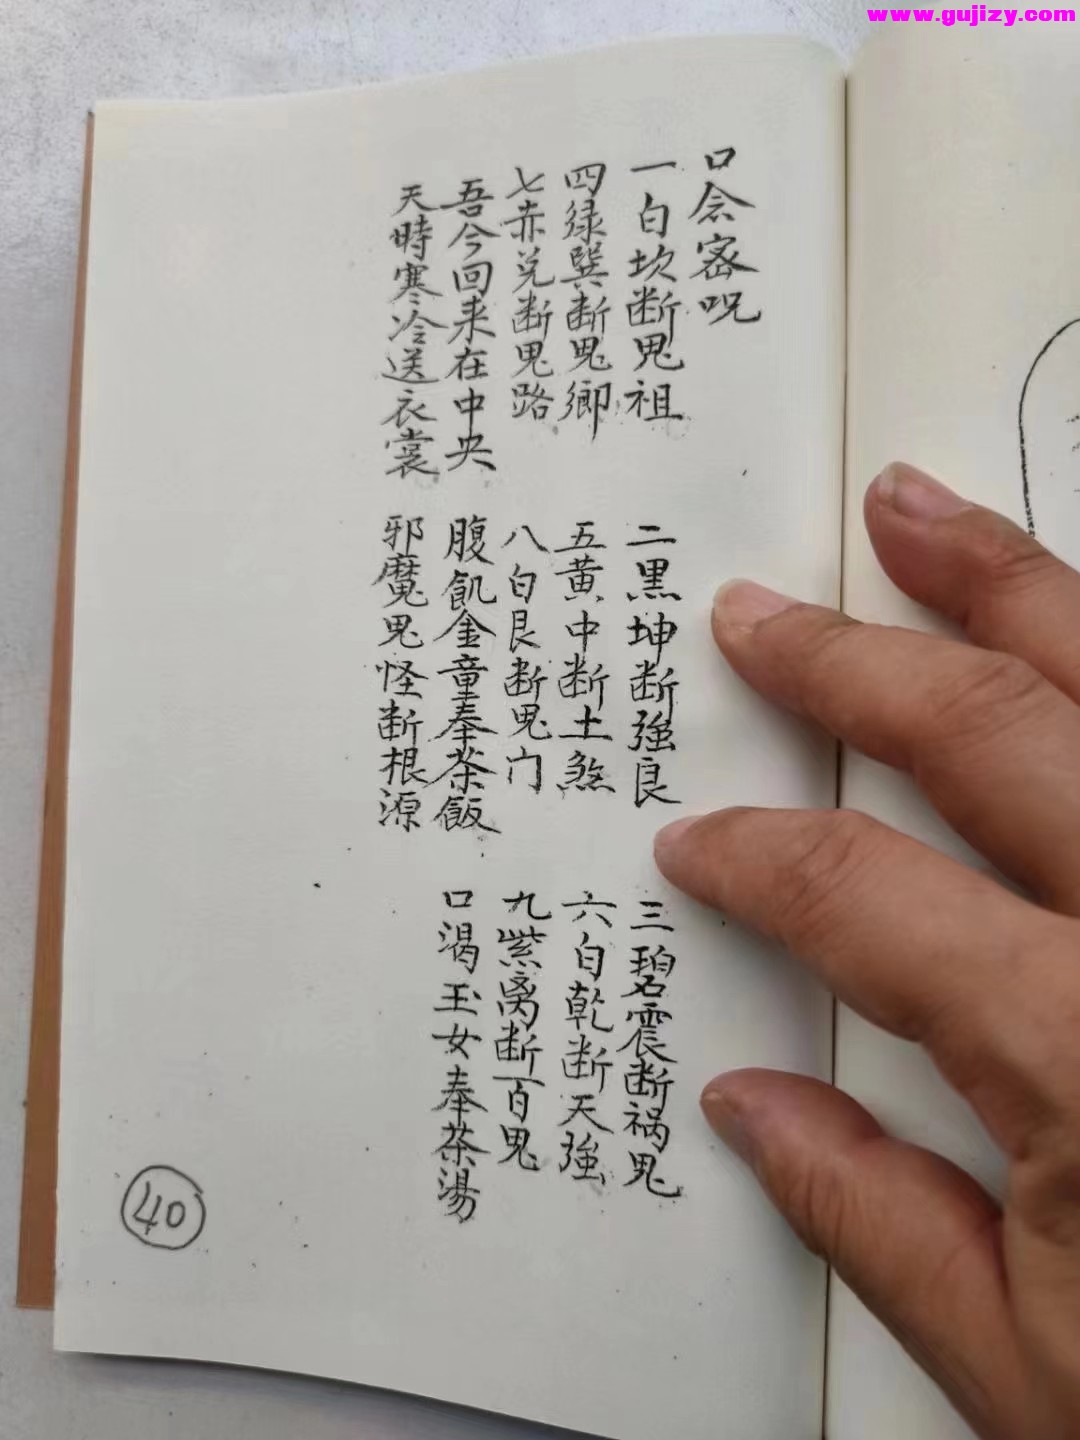 www.gujizy.com
口念密咒
一白坎断鬼祖 二黑坤断強良 三碧震断祸鬼
四绿巽断鬼鄉 五黄中断土煞 六白乾断天強
七赤兑断鬼路 八白艮断鬼门 九紫离断百鬼
吾今回来在中央 腹飢金童奉茶飯 口渴玉女奉茶湯
天時寒冷送衣裳 邪魔鬼怪断根源
40